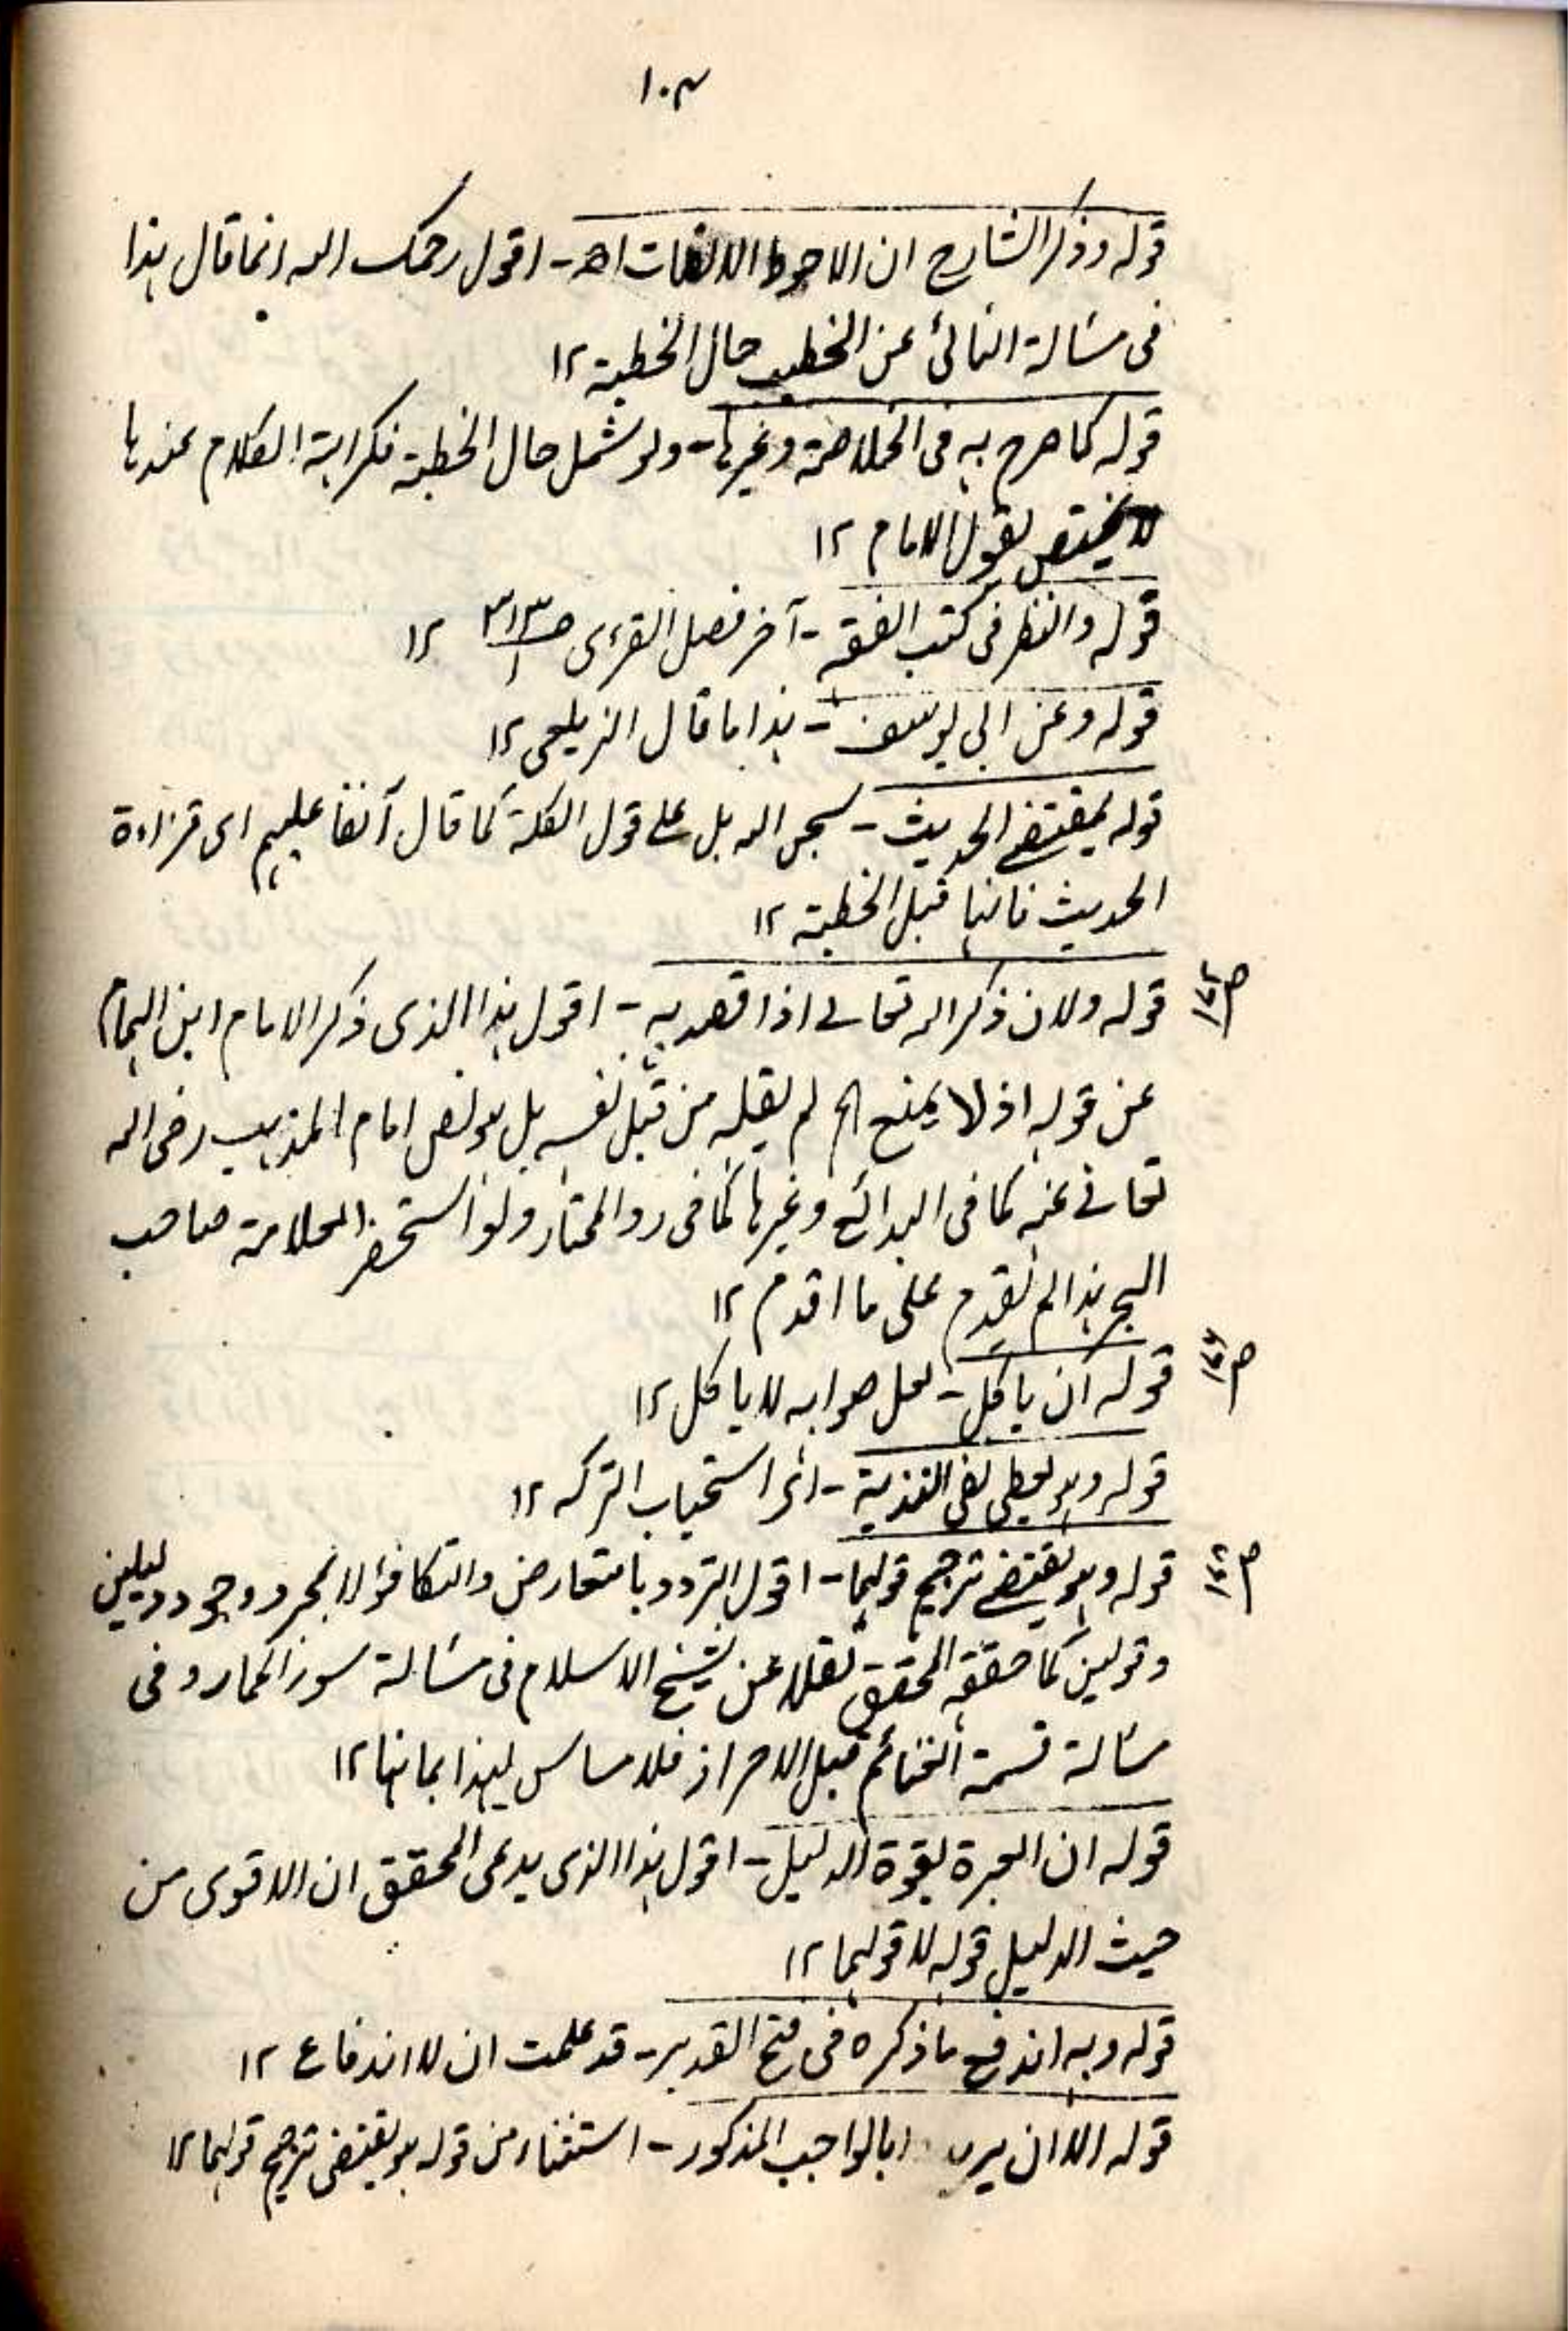 ۱۰۴
قوله وذكر الشارح ان الاحوط الانصات اھ ـ اقول رحمك الله انما قال هذا
فى مسألة النائى عن الخطيب حال الخطبة ۱۲
قوله كما صرح به فى الخلاصة وغيرها ـ ولو شمل حال الخطبة فكراهة الكلام عندها
لا يختص بقول الامام ۱۲
قوله والنظر فى كتب الفقه ـ آخر فصل القراءى صـ ۳۱۳/۱ ۱۲
قوله وعن ابى يوسف ـ هذا ما قال الزيلعى ۱۲
قوله بمقتضى الحديث ـ سبحن الله بل على قول الكلة كما قال آنفا عليهم اى قراءة
الحديث فانها قبل الخطبة ۱۲
قوله ولان ذكر الله تعالى اذا قصد به ـ اقول هذا الذى ذكر الامام ابن الهمام
عن قوله اذ لا يمنع الخ لم يقله من قبل نفسه بل هو نص امام المذهب رضى الله
تعالى عنه كما فى البدائع وغيرها كما فى رد المحتار ولو استحضر العلامة صاحب
البحر هذا لم يقدم على ما اقدم ۱۲
قوله ان ياكل ـ لعل صوابه لا ياكل ۱۲
قوله وهو يعطى نفى الفدية ـ اى استحباب الترك ۱۲
قوله وهو يقتضى ترجيح قولهما ـ اقول التردد بالتعارض والتكافؤ لا بمجرد وجود دليلين
وقولين كما حققه المحقق نقلا عن شيخ الاسلام فى مسألة سور الحمار وفى
مسألة قسمة الغنائم قبل الاحراز فلا مساس لهذا بما هنا ۱۲
قوله ان العبرة لقوة الدليل ـ اقول هذا الذى يدعى المحقق ان الاقوى من
حيث الدليل قوله لا قولهما ۱۲
قوله وبه اندفع ما ذكره فى فتح القدير ـ قد علمت ان لا اندفاع ۱۲
قوله الا ان يراد بالواجب المذكور ـ استثناء من قوله هو يقتضى ترجيح قولهما ۱۲